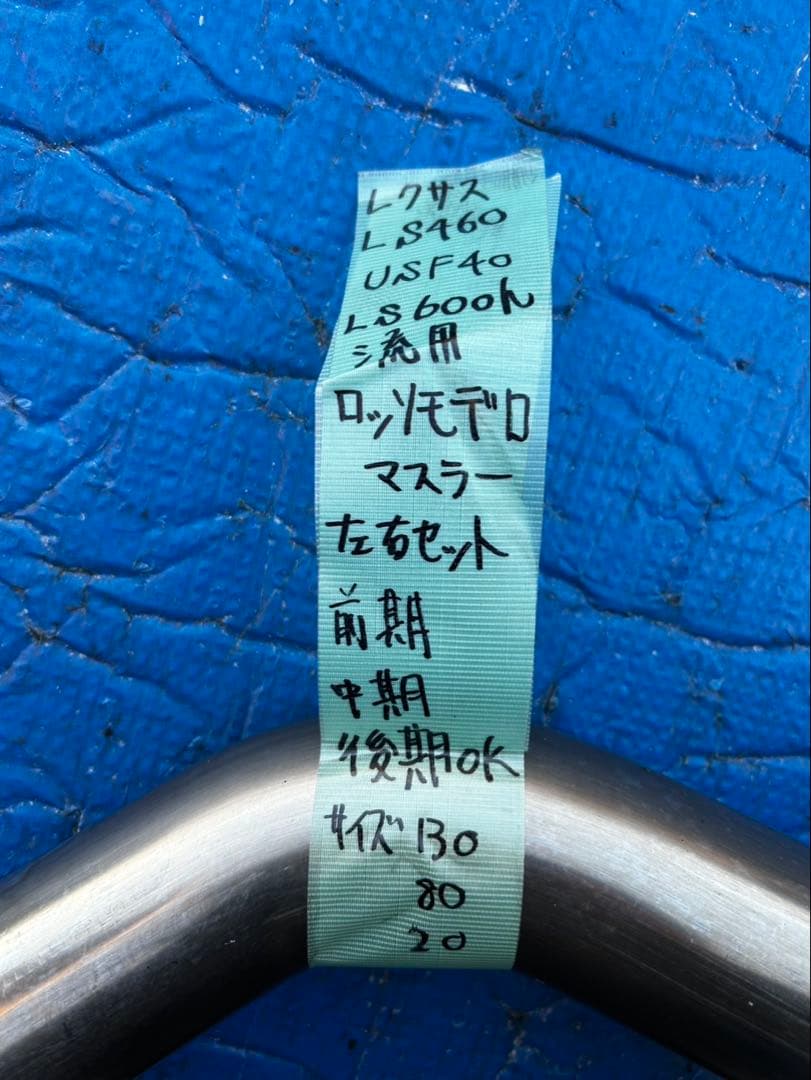 レクサス
LS460
USF40
LS600h
流用
ロッソモデロ
マスラー
左右セット
前期
中期
後期OK
サイズ 130
80
20